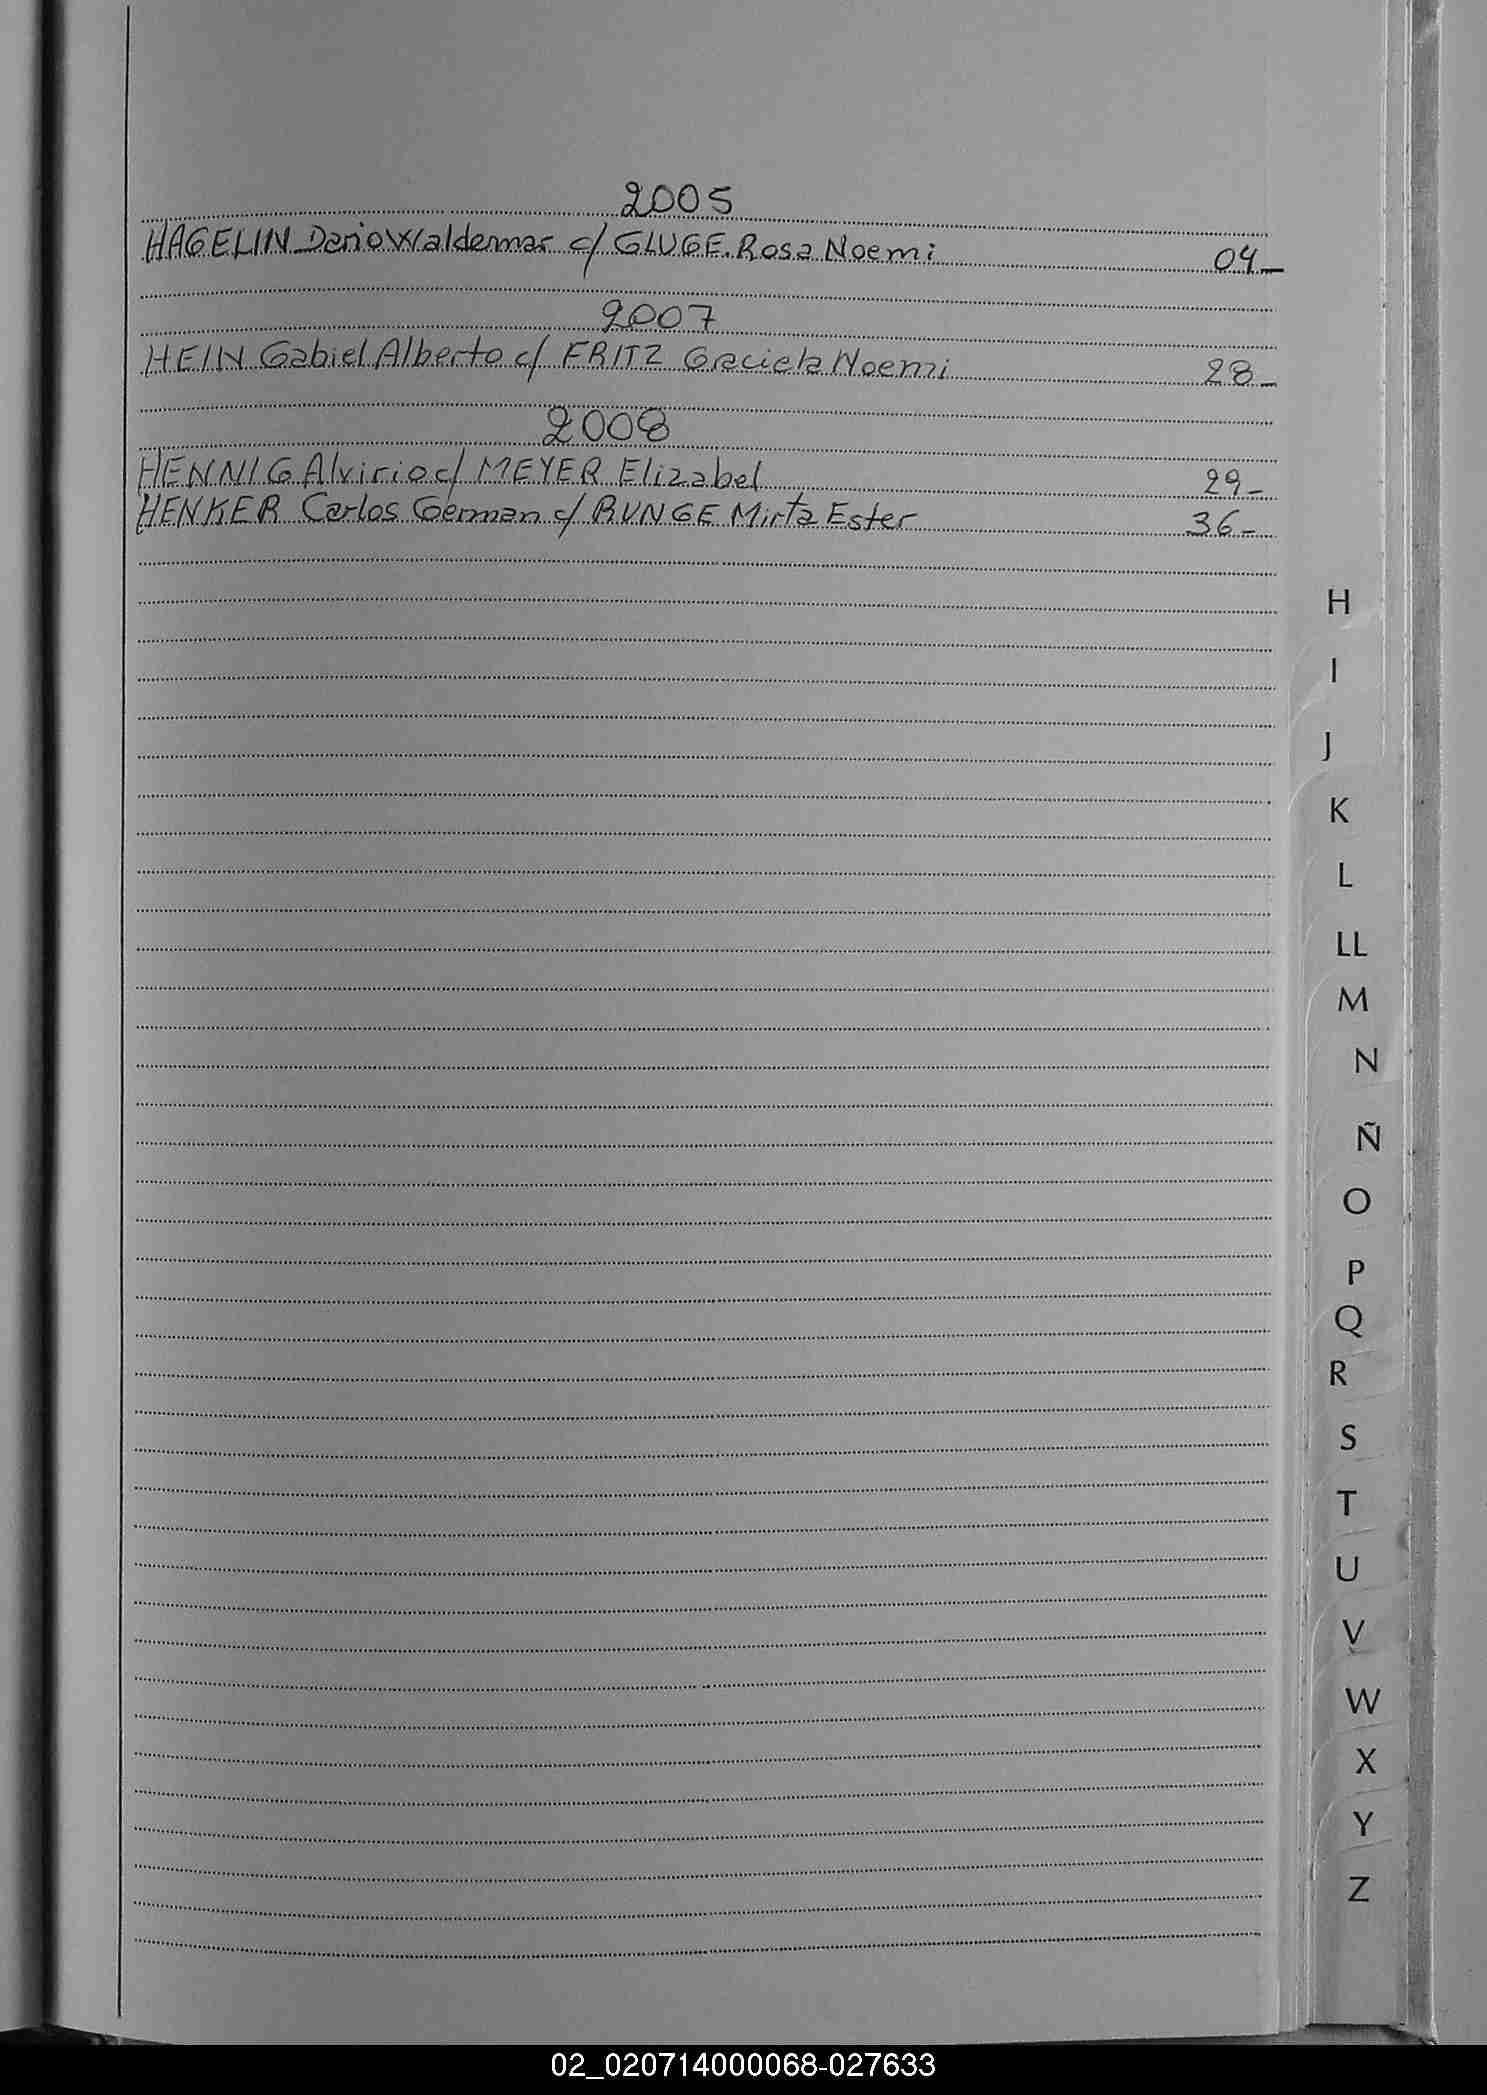 2005
HAGELIN Dario Waldemar c/ GLUGE Rosa Noemi 04_
2007
HEIN Gabiel Alberto c/ FRITZ Graciela Noemi 28_
2008
HENNIG Alvirio c/ MEYER Elizabel 29_
HENKER Carlos German c/ BUNGE Mirta Ester 36_
H
I
J
K
L
LL
M
N
Ñ
O
P
Q
R
S
T
U
V
W
X
Y
Z
02_020714000068-027633